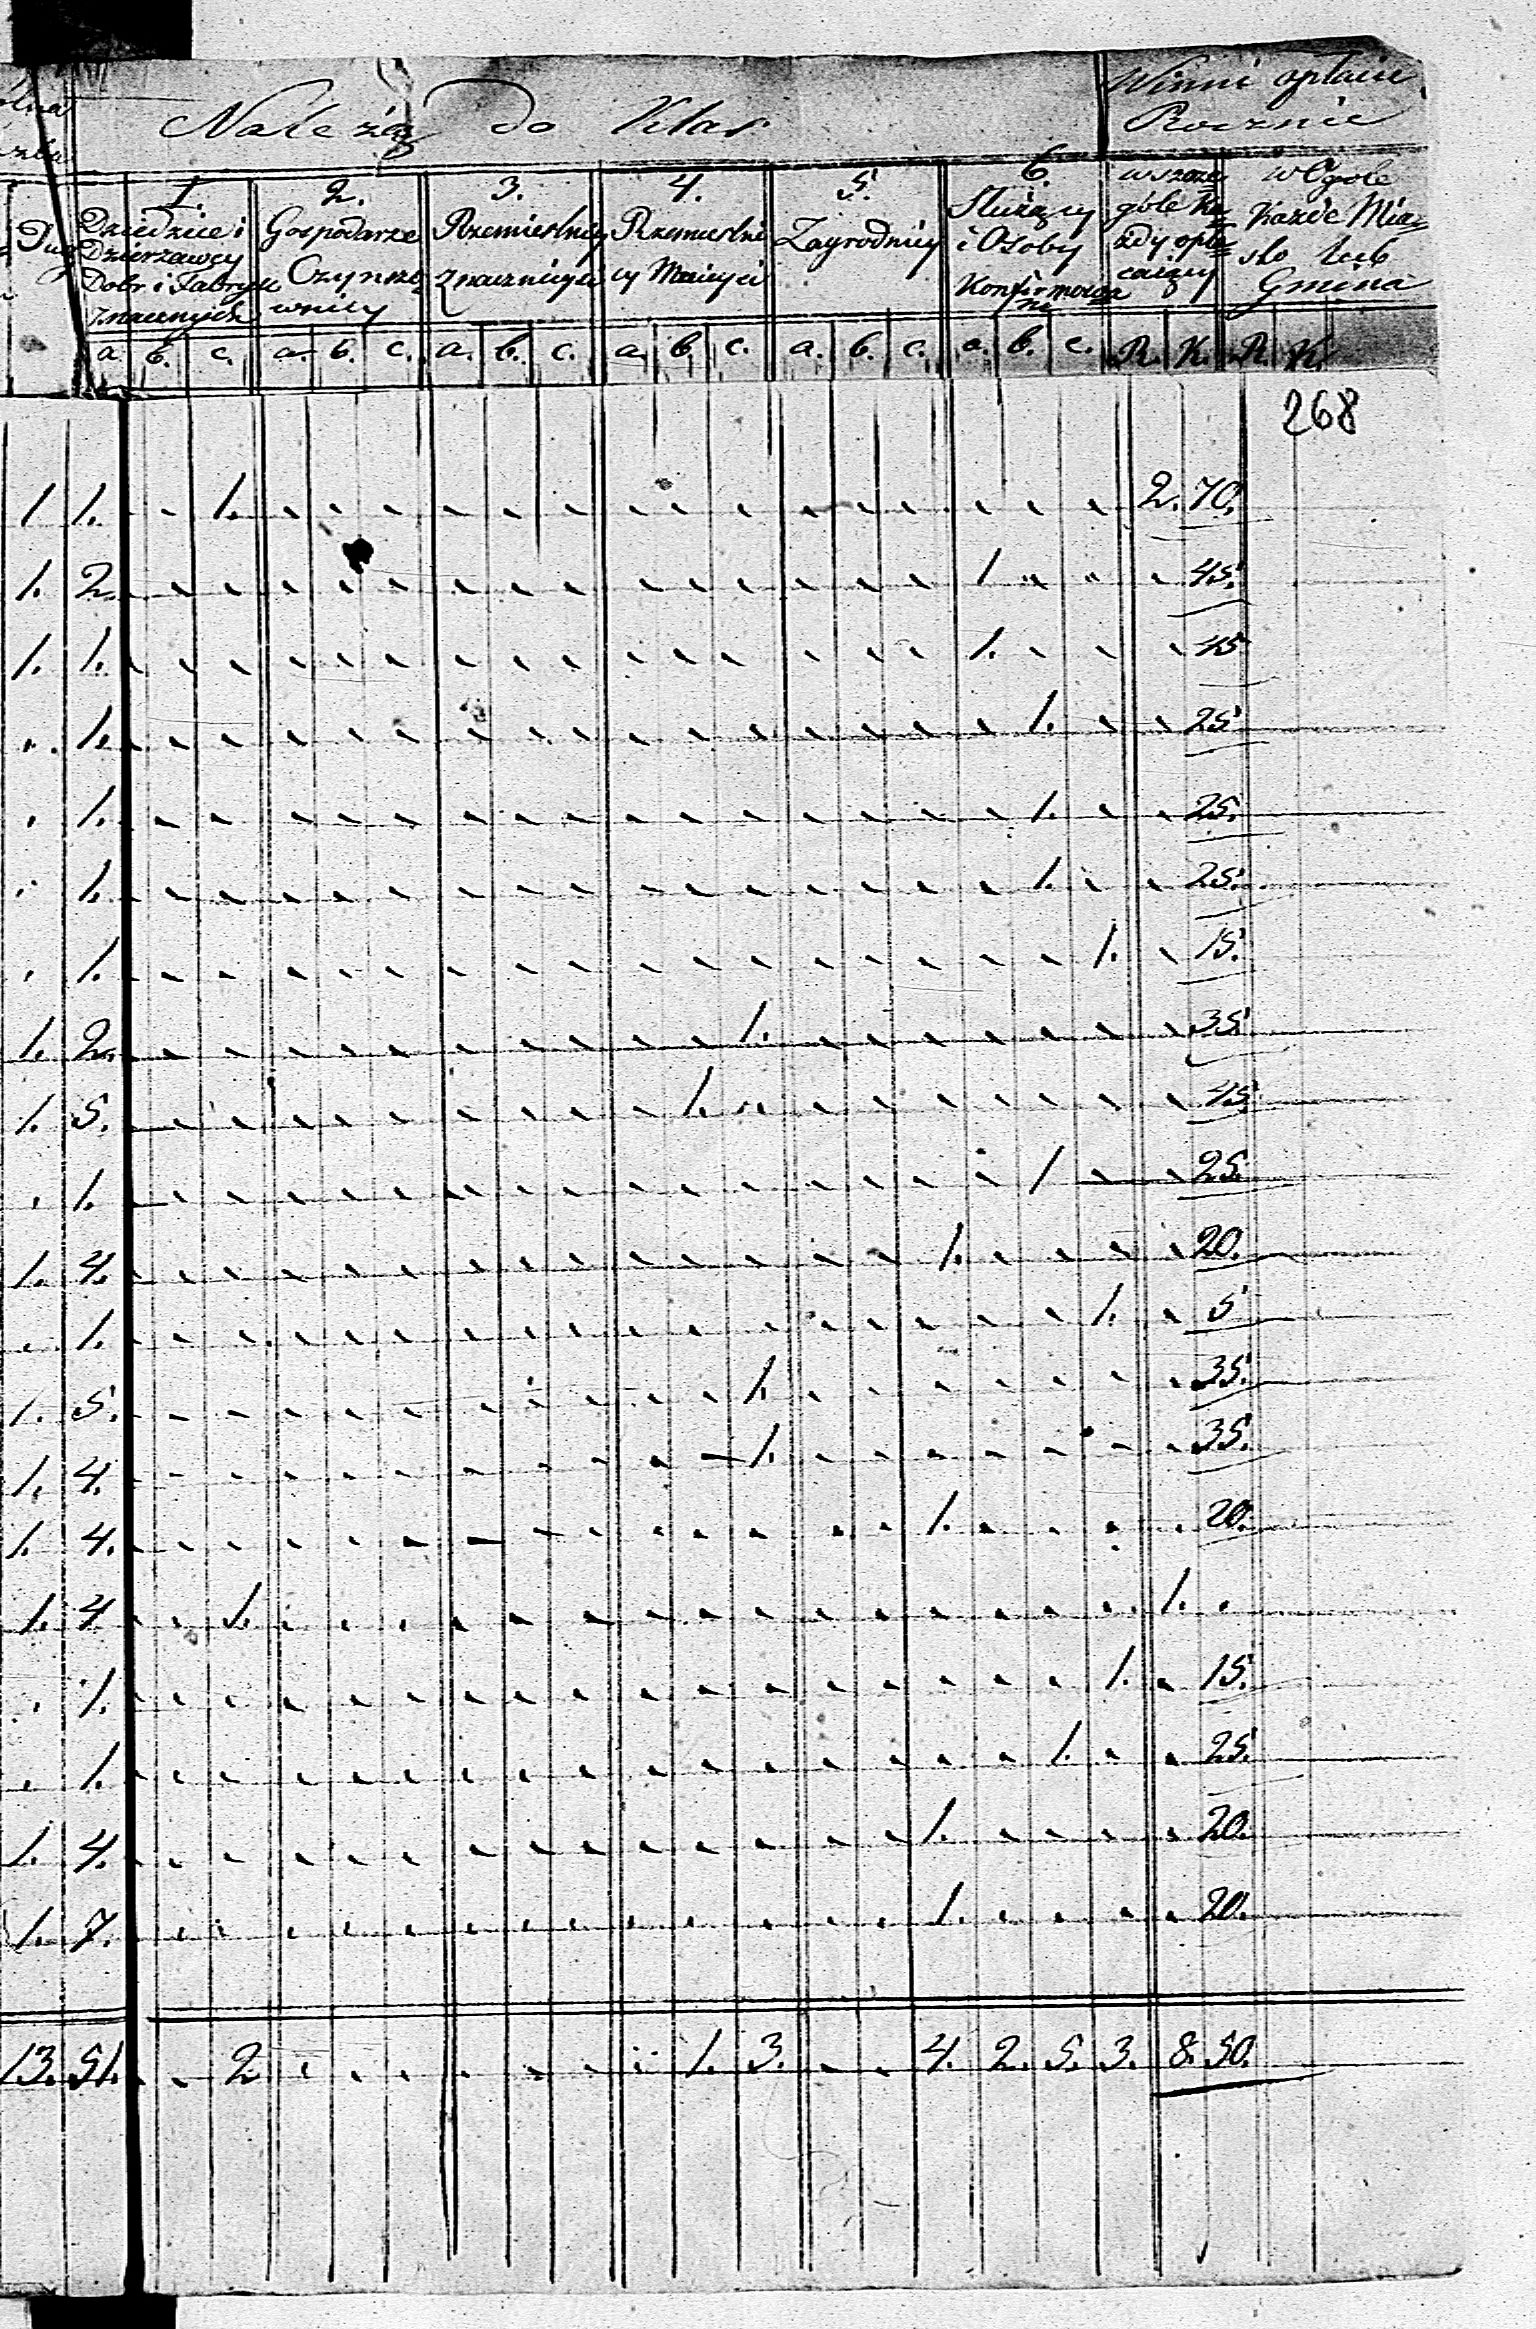 Należą do Klas
Winni opłacić
Rocznie
1.
Dziedzice i
Dzierzawcy
Dobr i Fabryk
znacznych
2.
Gospodarze
Czynszo
wnicy
3.
Rzemieślnicy
znacznieysi
4.
Rzemieślni
cy Mnieysi
5.
Zagrodnicy
6.
Służący
i Osoby
Konfirmowa
ne
wszcze
góle Ka
żdy opła
caiący
w Ogole
Każde Mia
sto lub
Gmina
a. b. c. a. b. c. a. b. c. a. b. c. a. b. c. a. b. c. R. K. R. K.
268
1 1. 1. 2. 70.
1. 2. 1 45.
1. 1. 1. 45
1. 1. 25.
1. 1. 25.
1. 1. 25.
1. 1. 15.
1. 2. 1. 35.
1. 5. 1. 45.
1. 1 25.
1. 4. 1. 20.
1. 1. 5
1. 5. 1. 35.
1. 4. 1. 35.
1. 4. 1. 20.
1. 4. 1. 1.
1. 1. 15.
1. 1. 25.
1. 4. 1. 20.
1. 7. 1. 20.
13. 51. 2 1. 3. 4. 2. 5. 3. 8. 50.